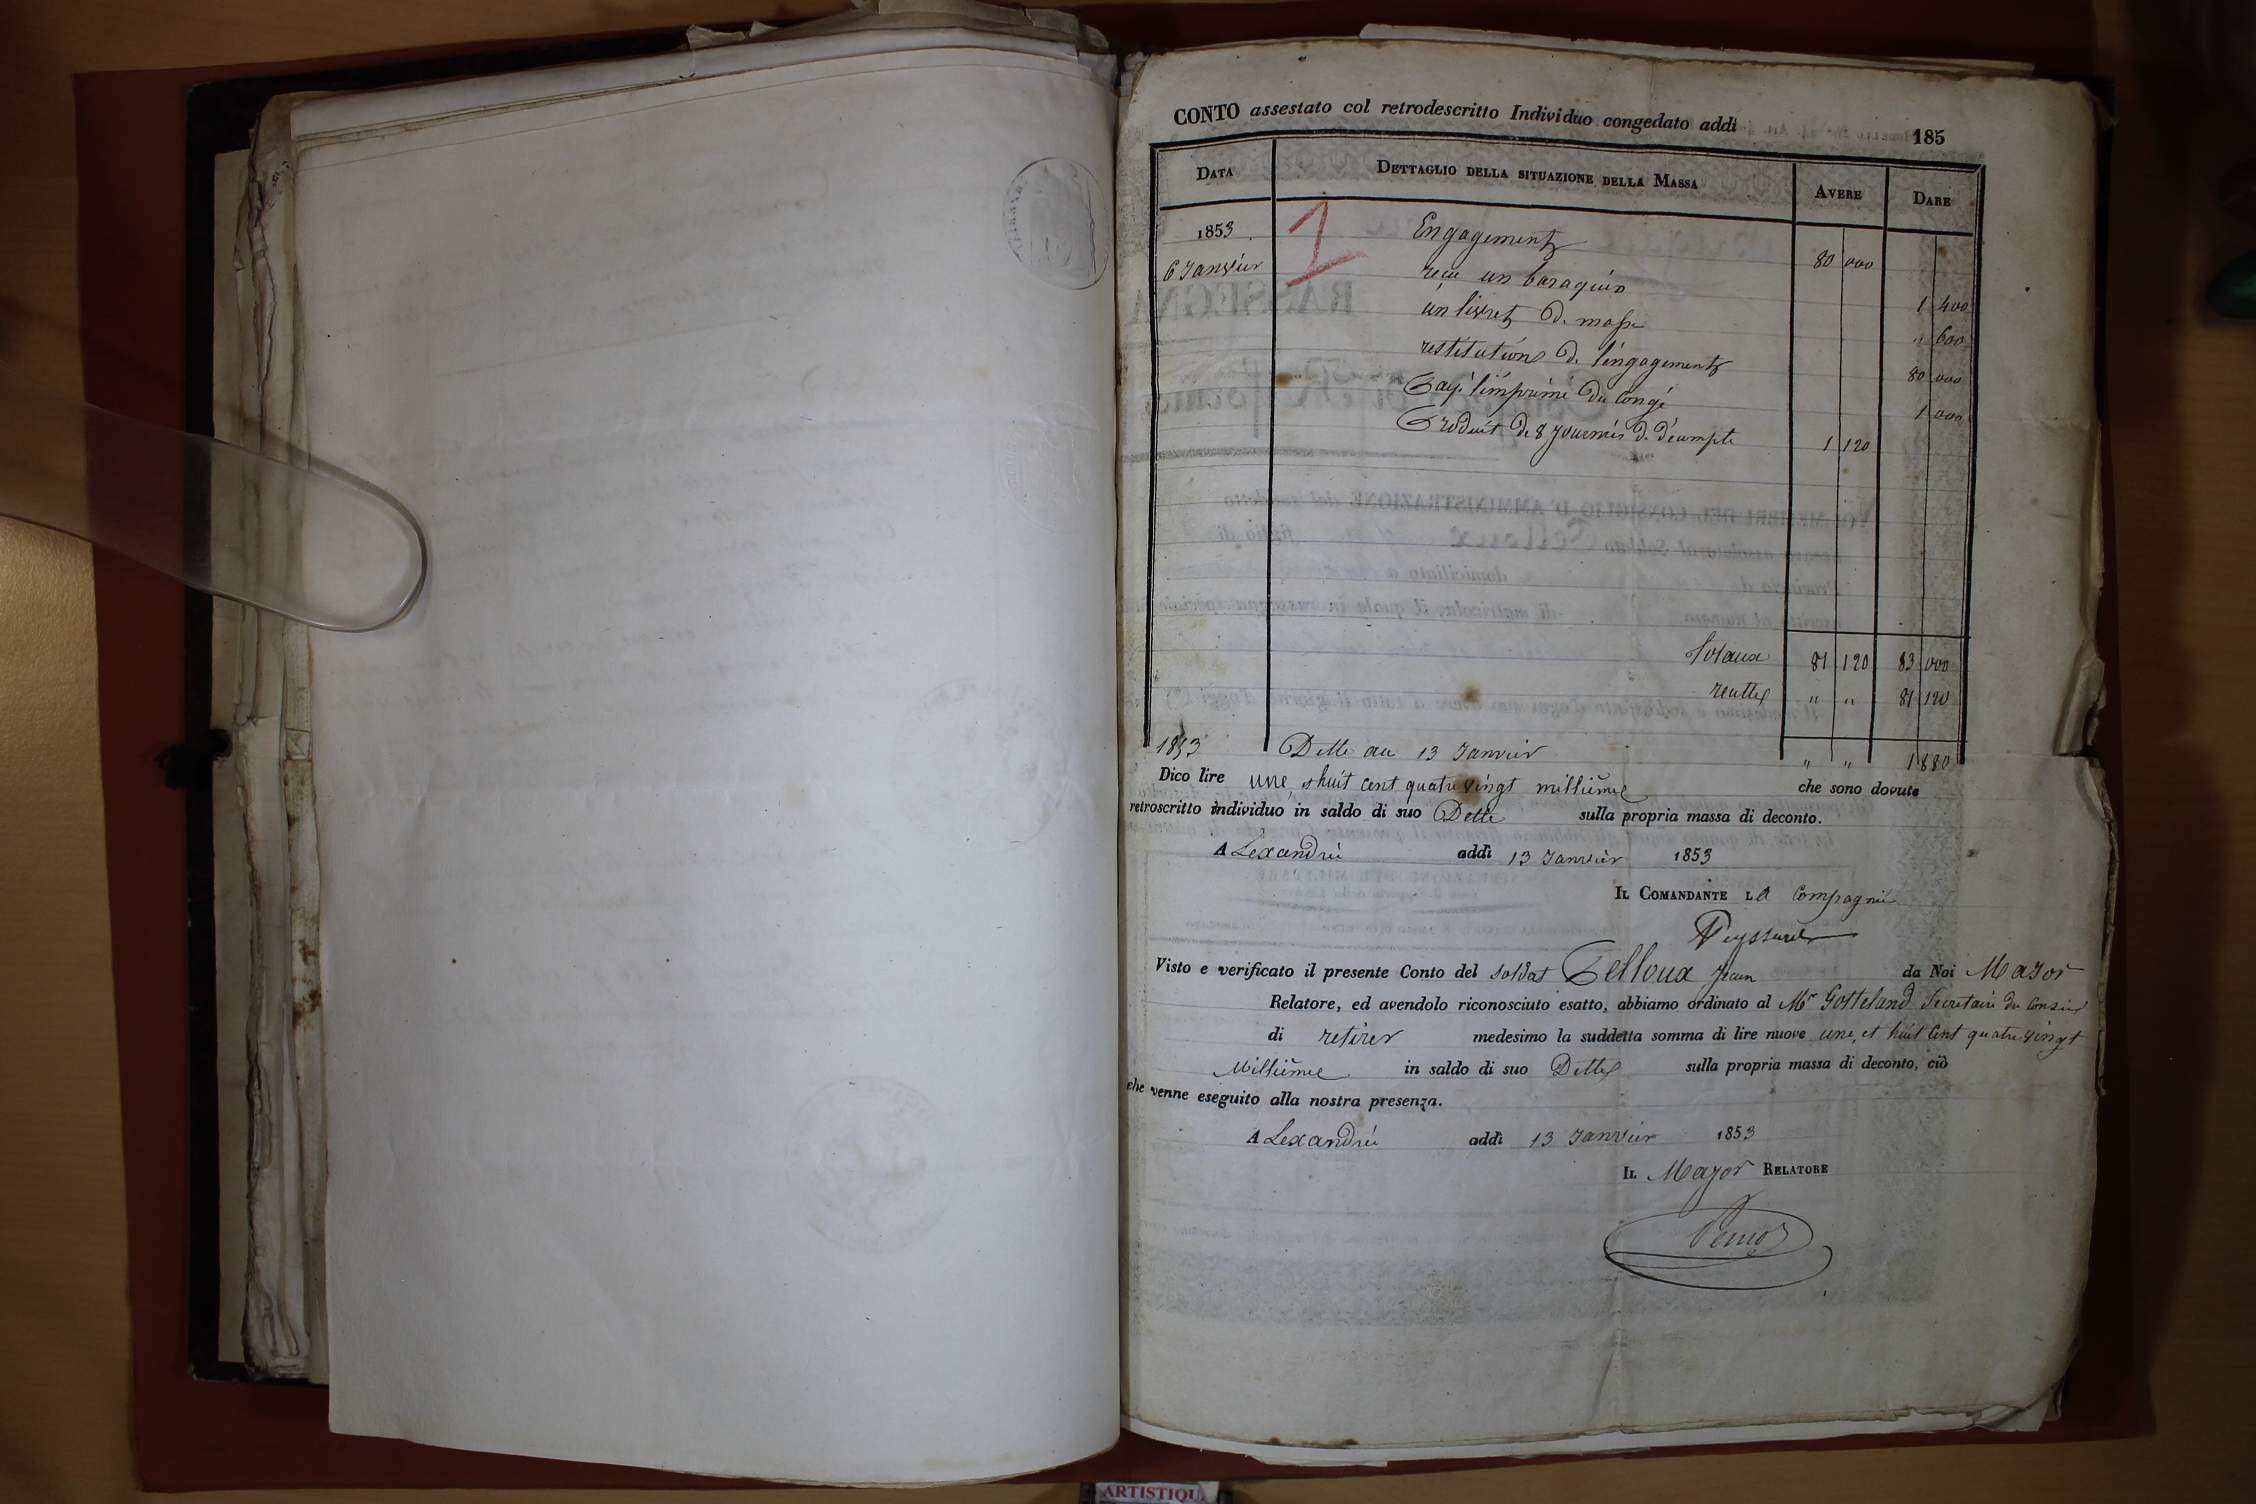 CONTO assestato col retrodescritto Individuo congedato addì 185
DATA DETTAGLIO DELLA SITUAZIONE DELLA MASSA AVERE DARE
1
1853 Engagement 80 000
6 Janvier reçu un baraquin 1 400
un livret d. masse " 600
restitution d. l'engagement 80 000
Payé l'imprimé du Congé 1 000
Produit de 8 journées d. décompte 1 120
Totaux 81 120 83 000
" " 81 120
1853 Dette au 13 Janvier " " 1 880
Dico lire une, et huit cent quatre vingt millième che sono dovute
retroscritto individuo in saldo di suo Dette sulla propria massa di deconto.
A Lexandrie addì 13 Janvier 1853
IL COMANDANTE La Compagnie
Visto e verificato il presente Conto del soldat Pelloux Jean da Noi Major
Relatore, ed avendolo riconosciuto esatto, abbiamo ordinato al Mr Gotteland Secretaire du Conseil
di retirer medesimo la suddetta somma di lire nuove une, et huit Cent quatre vingt
Millième in saldo di suo Dette sulla propria massa di deconto, ciò
che venne eseguito alla nostra presenza.
A Lexandrie addì 13 Janvier 1853
IL Major RELATORE
ARTISTIQU